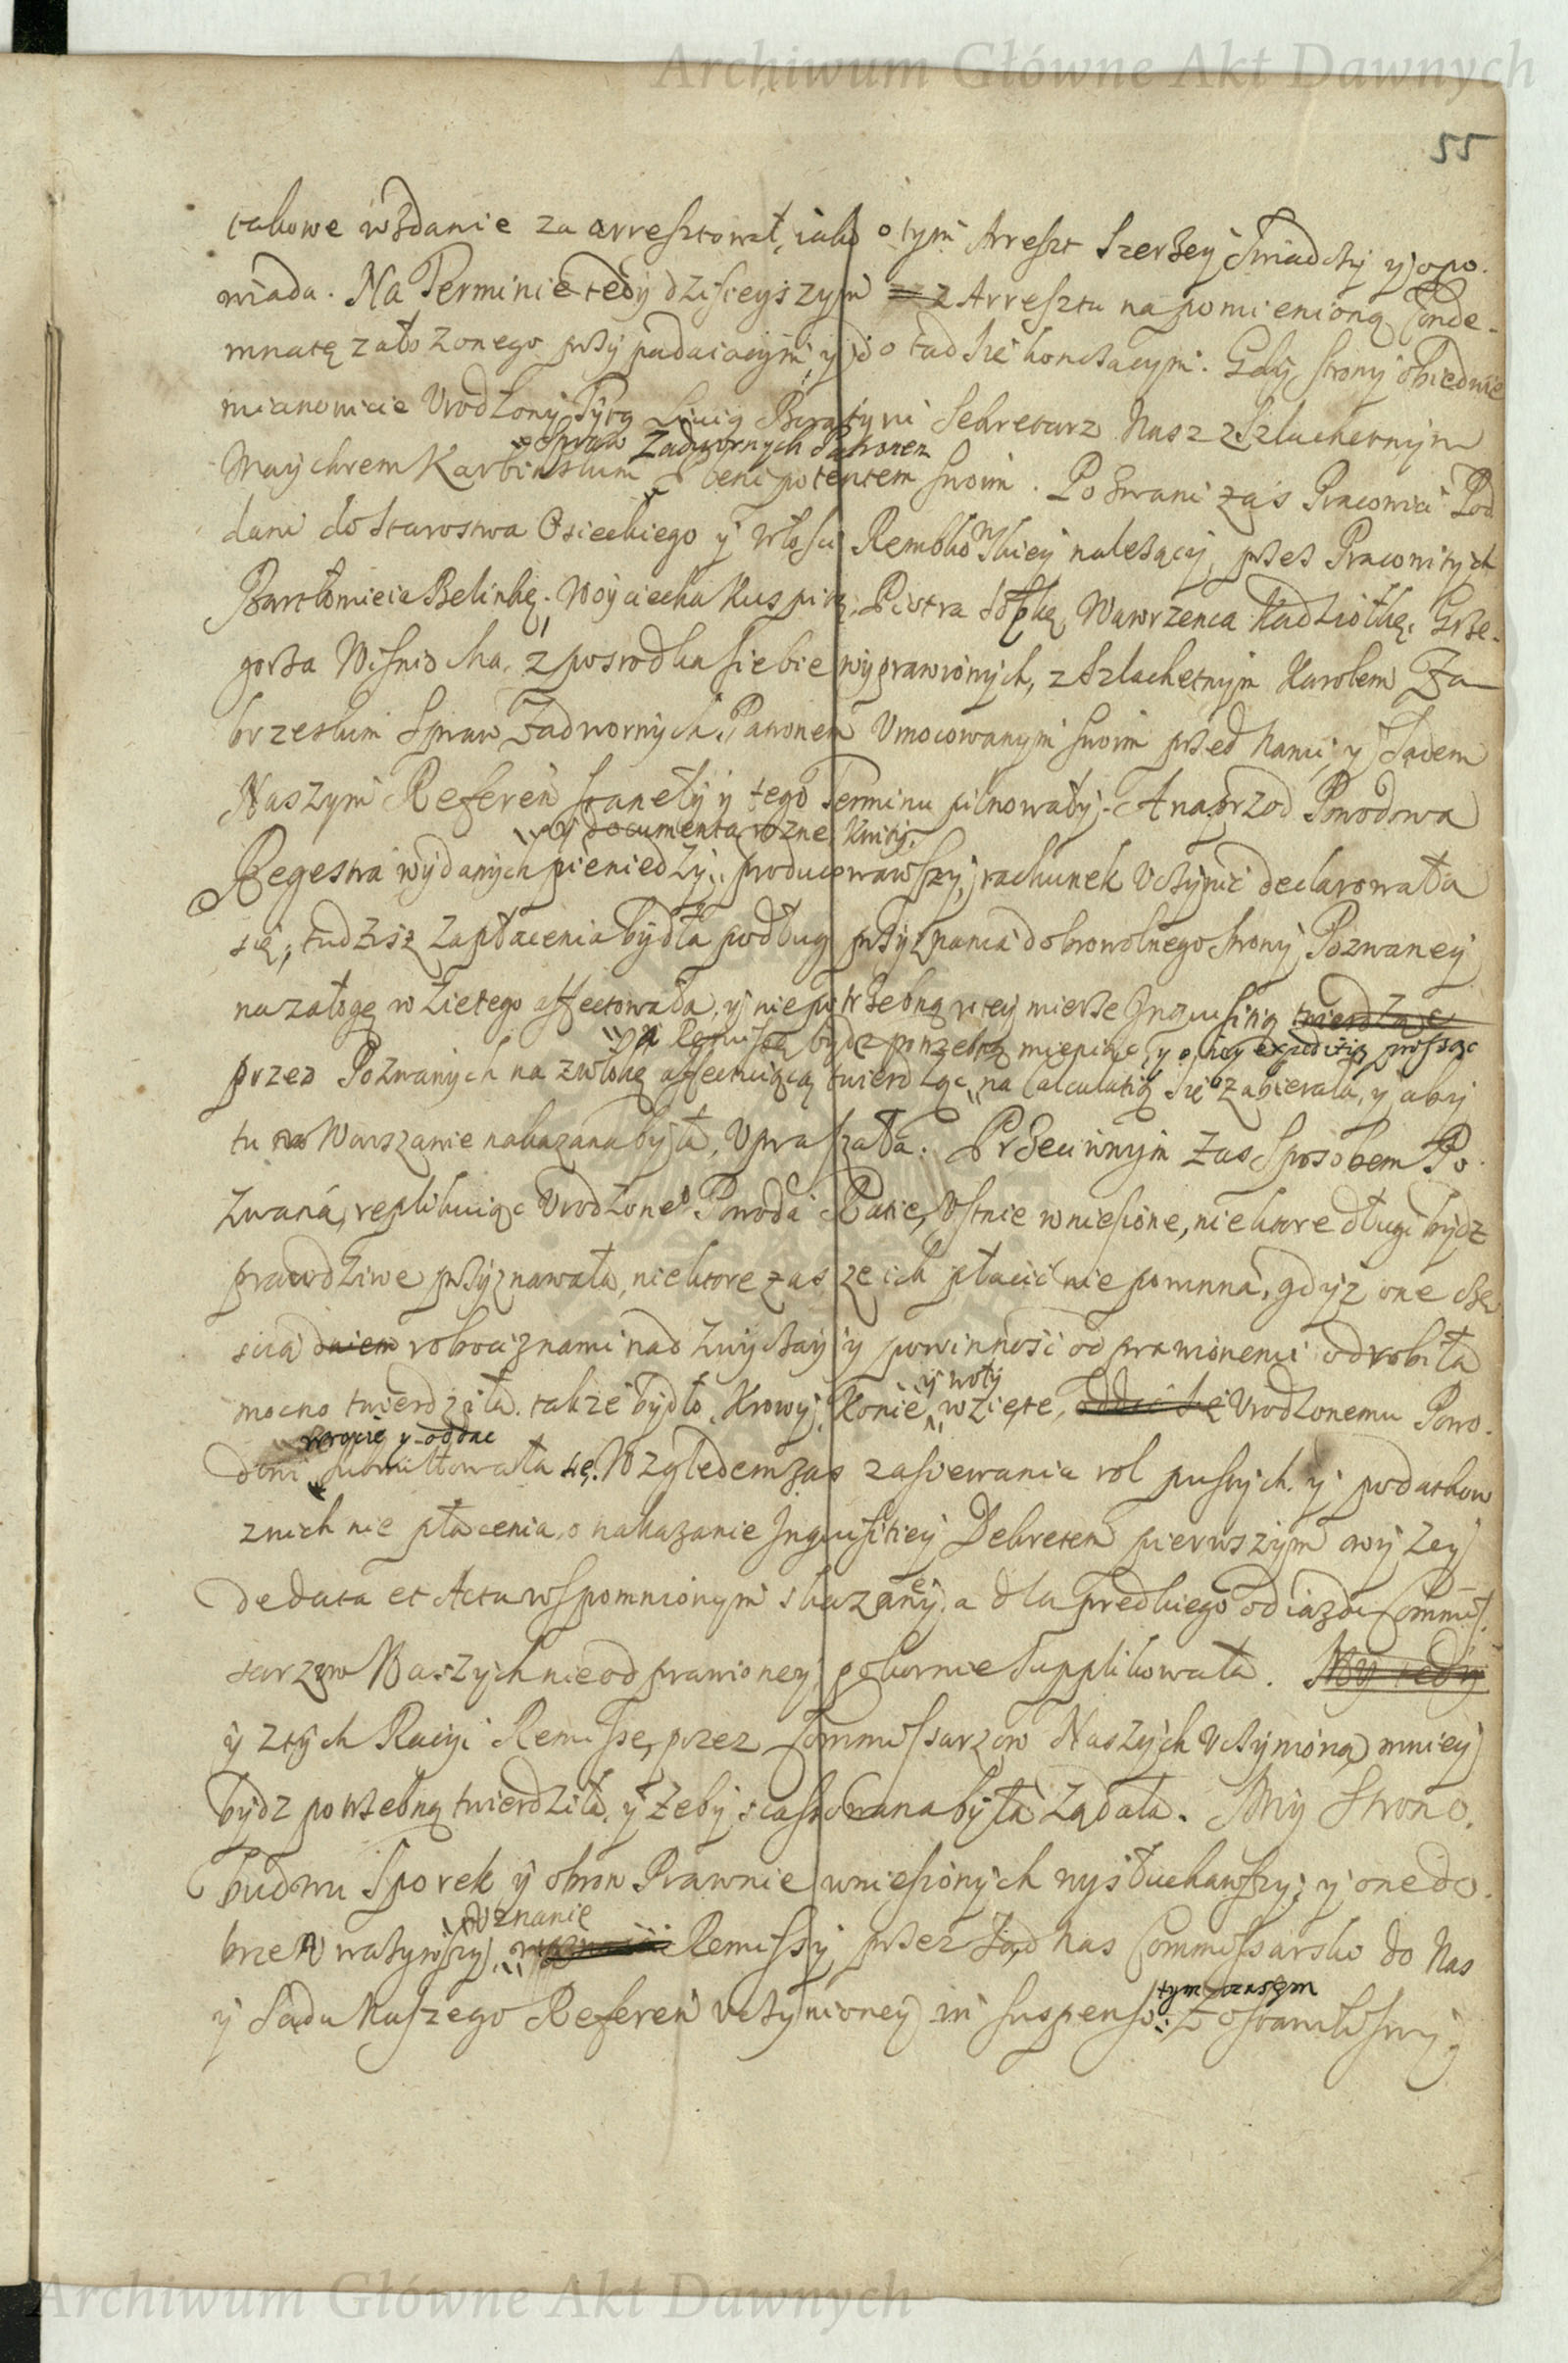 Archiwum Główne Akt Dawnych
55
takowe wzdanie za arresztował, iako o tym Arreszt szerzey swiadczy y opo-
wiada. Na Terminie tedy dzisieyszym z Arresztu na pomienioną Conde-
mnatę założonego przypadaiącym, y do tąd się kończącym. Gdy strony obiedwie
mianowicie Urodzony Tytq Liuiq Boratyni Sekretarz Nasz z Szlachetnym
spraw Zadwornych Patronem
Maychrem Karbinskim Plenipotentem swoim. Pozwani zaś Pracowici Pod
dani do Starostwa Osieckiego y Włosci Rembkowskiey należący, przez Pracowitych
Bartłomieia Belinkę, Woyciecha Kuspita, Piotra Wawrzenca Kądziołkę, Grze-
gorza Wisniocha, z posrodka siebie wyprawionych, z Szlachetnym Karolem Za
brzeskim Spraw Zadwornych Patronem Umocowanym swoim przed Nami, y Sądem
Naszym Referen stanęły y tego Terminu pilnowały. A naprzod Powodowa
y documenta rozne, kwity,
Regestra wydanych pieniedzy producowawszy, rachunek uczynić declarowała
się, tudzisz zapłacenia bydła podług przyznania dobrowolnego strony Pozwaney
na załogę wzietego affectowała, y niepotrzebną w tey mierze Inquisitią twierdząc
a Remissą bydz potrzebną mieniąc, y o iey expeditią prosząc
przez Pozwanych na zwłokę affectuiącą twierdząc na Calculatią się zabierała, y aby
tu w Warszawie nakazana była, upraszała. Przeciwnym zas sposobem Po-
zwana, replikuiąc Urodzone Powoda Racie, ustnie wniesione, niektore długi bydz
prawdziwe przyznawała, niektore zas ze ich płacić nie powinna, gdyż one cze
scią robociznami nad zwyczay y powinność odprawionemi odrobiła
y woły
mocno twierdziła. także bydło, Krowy, Konie, wzięte, oddać się Urodzonemu Powo-
wrocic y oddac
dowi submittowała się. Względem zas zasiewania rol pustych, y podatkow
znich nie płacenia, o nakazanie Inquisitiey Dekretem pierwszym wyzey
de data et Actu wspomnionym skazaney, a dla prędkiego odiazdu Commis-
sarzow Naszych nie odprawioney, pokornie supplikowała. My tedy
y z tych Racyi Remissę, przez Commissarzow Naszych uczynioną mniey
bydz potrzebną twierdziła, y żeby scassowana była żądała. My Stron o-
budwu Sporek y obron Prawnie wniesionych wysłuchawszy, y one do-
uznanie
brze uwazywszy, Remissy przez Sąd nas Commissarsko do Nas
tym czasem
y Sądu Naszego Referen uczynioney in suspenso zostawilismy,
Archiwum Główne Akt Dawnych